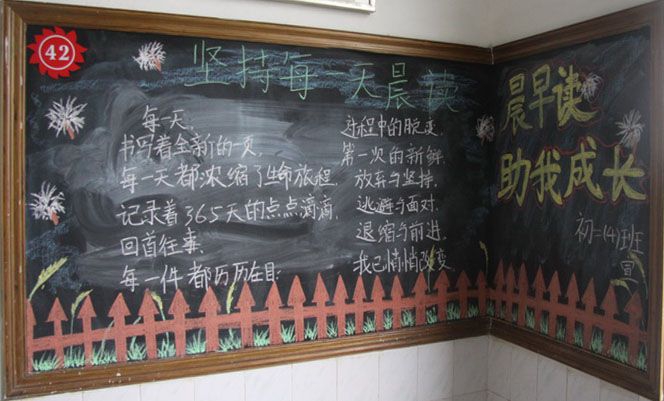 42
坚持每一天晨读
每一天,
书写着全新的页,
每一天都浓缩了生命旅程,
记录着365天的点点滴滴,
回首往事,
每一件都历历在目:
过程中的脱变,
第一次的新鲜,
放弃与坚持,
逃避与面对,
退缩与前进,
我已悄悄改变.
晨早读
助我成长
初二(4)班
宣